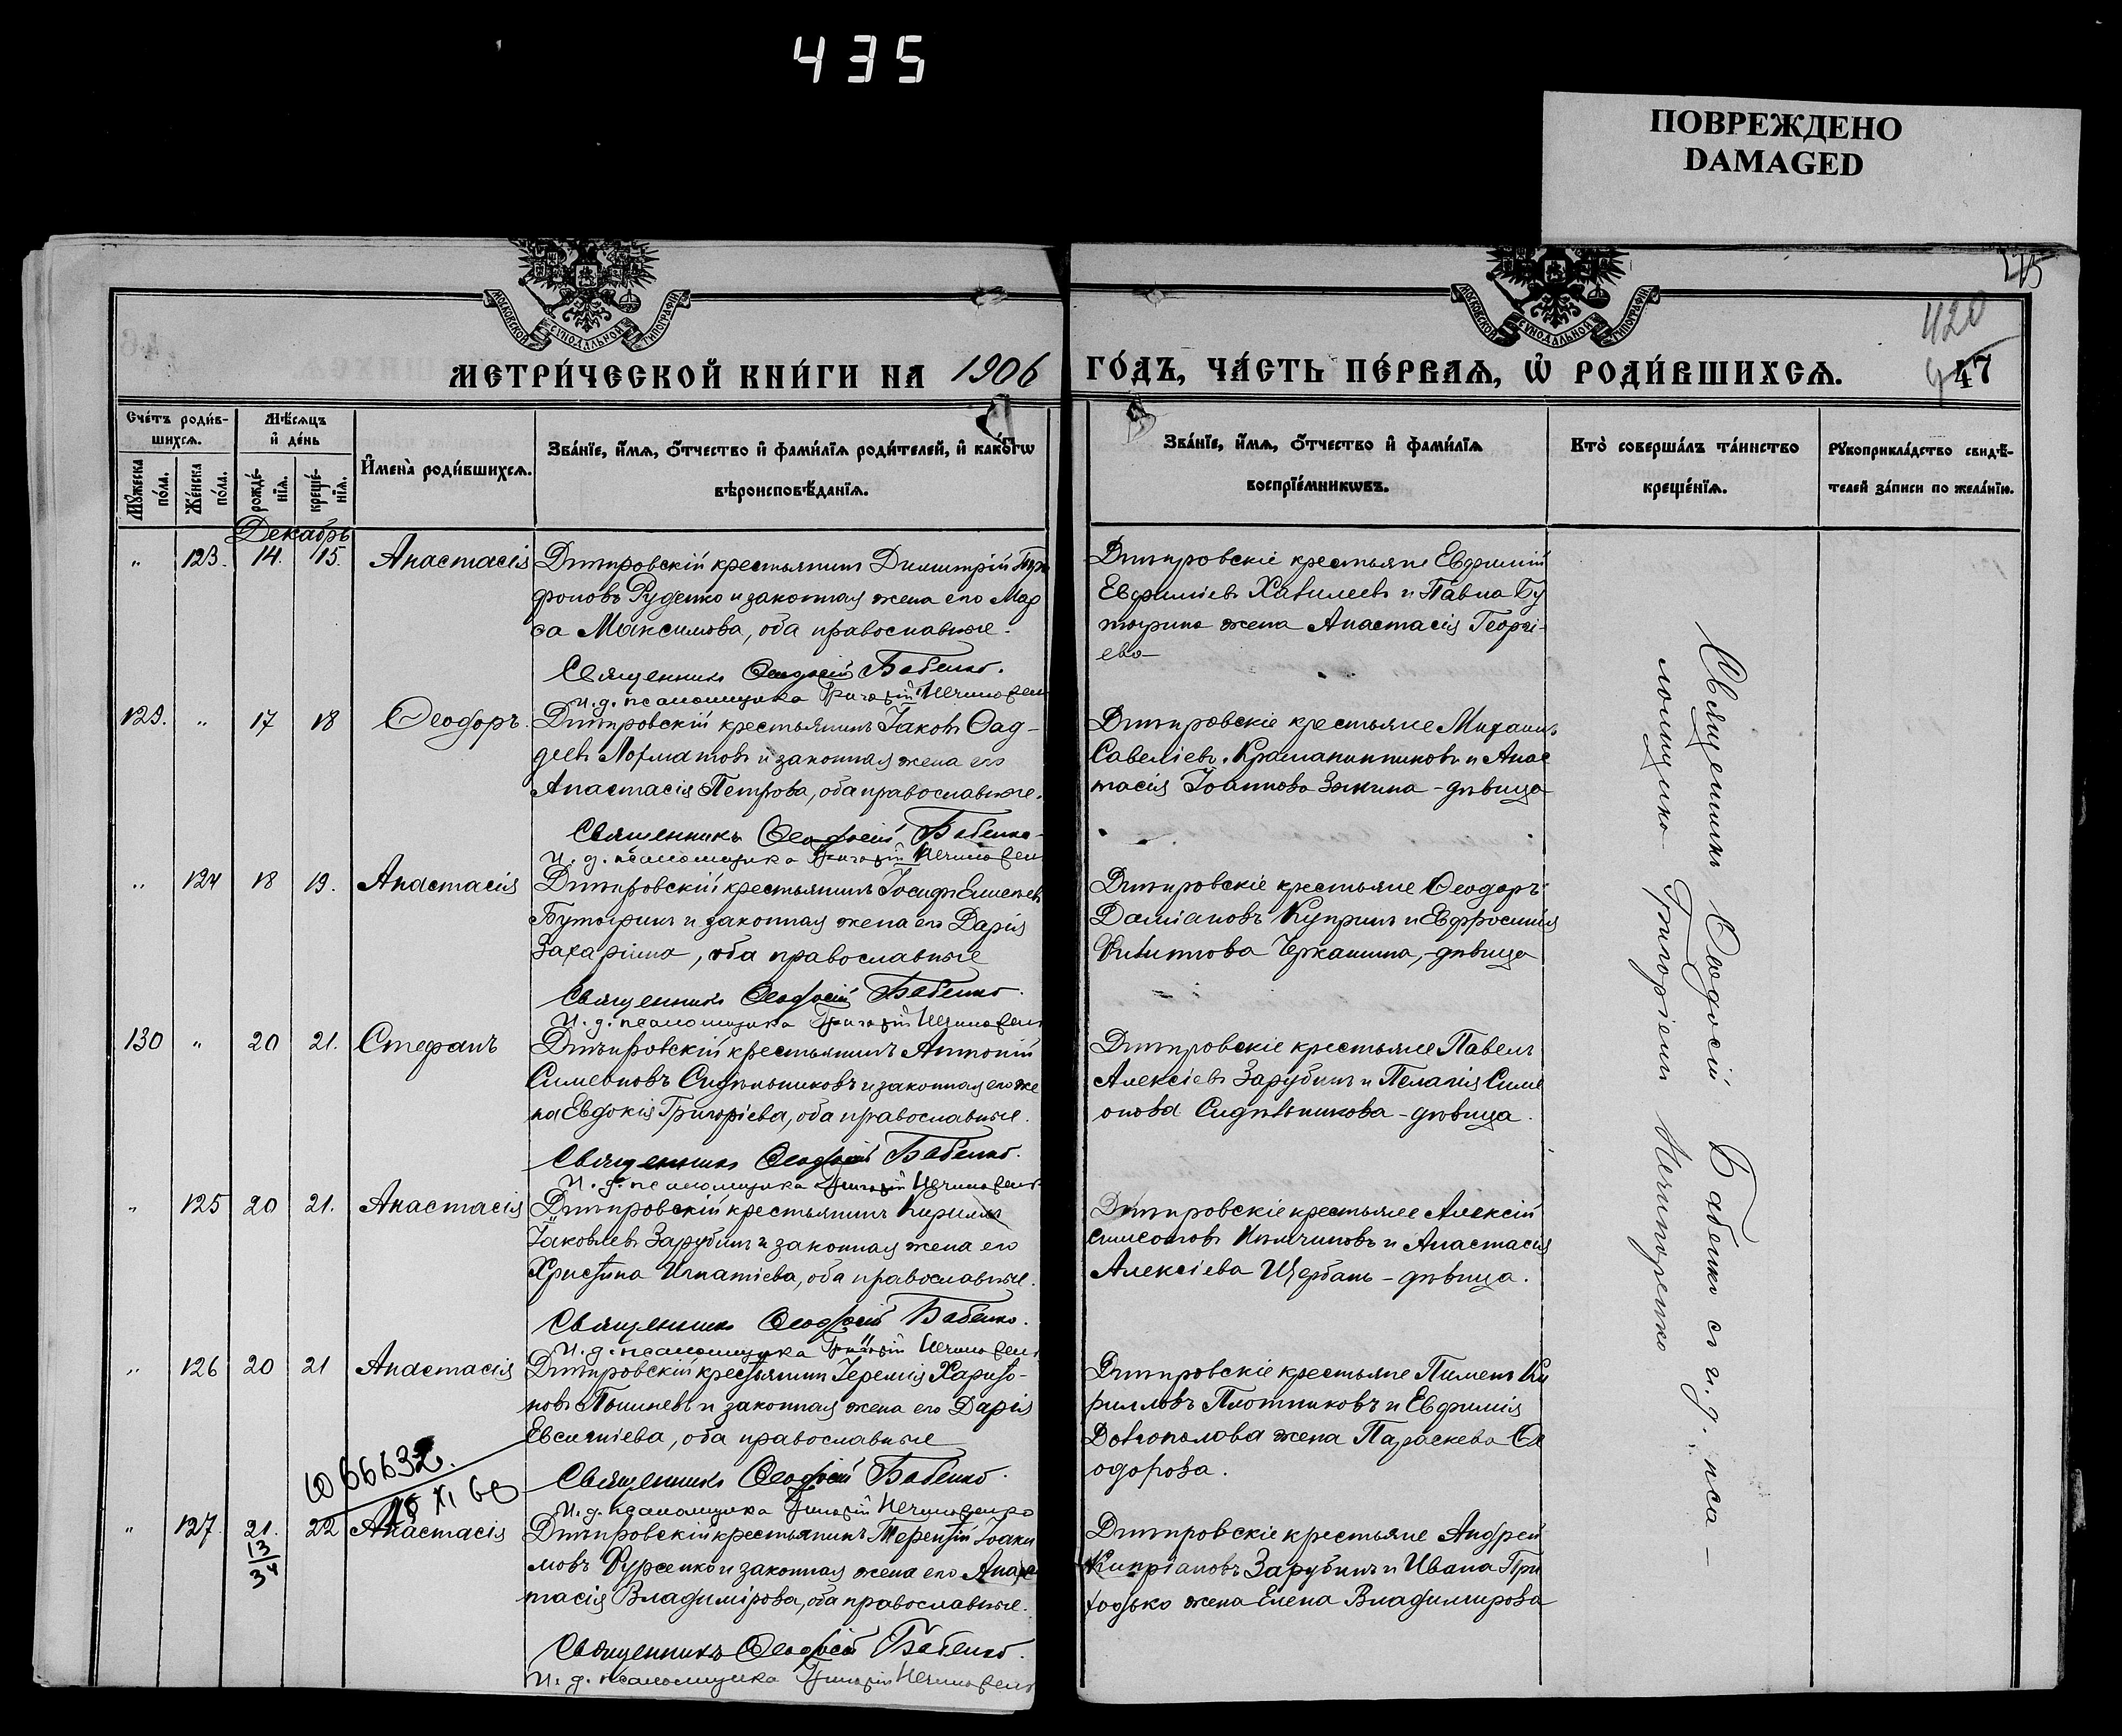 435
ПОВРЕЖДЕНО
DAMAGED
МОСКОВСКОЙ СѴНОДАЛЬНОЙ ТИПОГРАФІИ
МОСКОВСКОЙ СѴНОДАЛЬНОЙ ТИПОГРАФІИ
420
47
МЕТРИ́ЧЕСКОЙ КНИ́ГИ НА 1906 ГО́ДЪ, ЧА́СТЬ ПЕ́РВАѦ, Ѡ҆ РОДИ́ВШИХСѦ.
Сче́тъ роди́в-
шихсѧ.
Мѣ́сѧцъ
и҆ де́нь
Мꙋ́жеска по́ла.
Же́нска по́ла.
рожде́-
нїѧ.
креще́-
нїѧ.
И҆мена̀ роди́вшихсѧ.
Зва́нїе, и҆́мѧ, ѻ҆́тчество и҆ фами́лїѧ роди́телей, и҆ како́гѡ
вѣроисповѣ́данїѧ.
Зва́нїе, и҆́мѧ, ѻ҆́тчество и҆ фами́лїѧ
воспрїе́мникѡвъ.
Кто̀ соверша́лъ та́инство
креще́нїѧ.
Рꙋкоприкла́дство свидѣ́-
телей за́писи по жела́нїю.
Декабрь
" 123. 14. 15. Анастасія Дмитровскій крестьянинъ Димитрій Три
фоновъ Руденко и законная жена его Мар
ѳа Максимова, оба православные.
Священникъ Ѳеодосій Бабенко.
и. д. псаломщика Григорій
Дмитровскіе крестьяне Евфимій
Евфиміевъ и Павла Бу
тырина жена Анастасія Георгі-
ева
129. " 17 18 Ѳеодоръ. Дмитровскій крестьянинъ Іаковъ Ѳад-
деевъ Лохматовъ и законная жена его
Анастасія Петрова, оба православные.
Священникъ Ѳеодосій Бабенко
и. д. псаломщика Григорій
Дмитровскіе крестьяне Михаилъ
Савеліевъ и Анас
тасія Іоаннова Зыкина - дѣвица
" 124 18 19. Анастасія Дмитровскій крестьянинъ Іосифъ
Бутыринъ и законная жена его Дарія
Захаріина, оба православные
Священникъ Ѳеодосій Бабенко.
И. д. псаломщика Григорій
Дмитровскіе крестьяне Ѳеодоръ
Даміановъ Купринъ и Евфросинія
Черкашина, - дѣвица
130 " 20 21. Стефанъ Дмитровскій крестьянинъ Антоній
Симеоновъ Сидѣльниковъ и законная его же
на Евдокія Григоріева, оба православные.
Священникъ Ѳеодосій Бабенко.
И. д. псаломщика Григорій
Дмитровскіе крестьяне Павелъ
Алексіевъ Зарубинъ и Пелагія Симе
онова Сидѣльникова - дѣвица.
" 125 20 21. Анастасія Дмитровскій крестьянинъ Кириллъ
Іаковлевъ Зарубинъ и законная жена его
Христина Игнатіева, оба православные.
Священникъ Ѳеодосій Бабенко.
И. д. псаломщика Григорій
Дмитровскіе крестьяне Алексій
Симеоновъ и Анастасія
Алексіева Щербань - дѣвица.
" 126 20 21 Анастасія Дмитровскій крестьянинъ Іеремія Харито-
новъ и законная жена его Дарія
Евсигніева, оба православные
Священникъ Ѳеодосій Бабенко.
И. д. псаломщика Григорій
Дмитровскіе крестьяне Пименъ Ки
рилловъ Плотниковъ и Евфимія
Доброполова жена Параскева Ѳе
одорова.
" 127. 21. 22 Анастасія Дмитровскій крестьянинъ Терентій Іоаки
мовъ Фурсенко и законная жена его Анас
тасія Владимірова, оба православные.
13
34
Священникъ Ѳеодосій Бабенко.
И. д. псаломщика Григорій
Дмитровскіе крестьяне Андрей
Кипріановъ Зарубинъ и Ивана При
ходько жена Елена Владимирова
Священникъ Ѳеодосій Бабенко съ и. д. пса-
ломщика Григоріемъ Нечипуренко